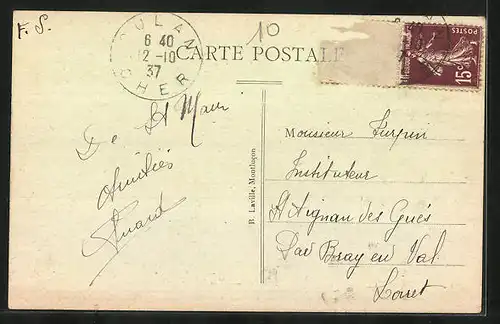 F. S.
10
6 40
12 -10
37
CHER
CARTE POSTALE
POSTES
15c
De St Maur
Amitiés
B. Laville, Montluçon
Monsieur Turpin
Instituteur
St Aignan des Gués
Par Bray en Val
Loiret